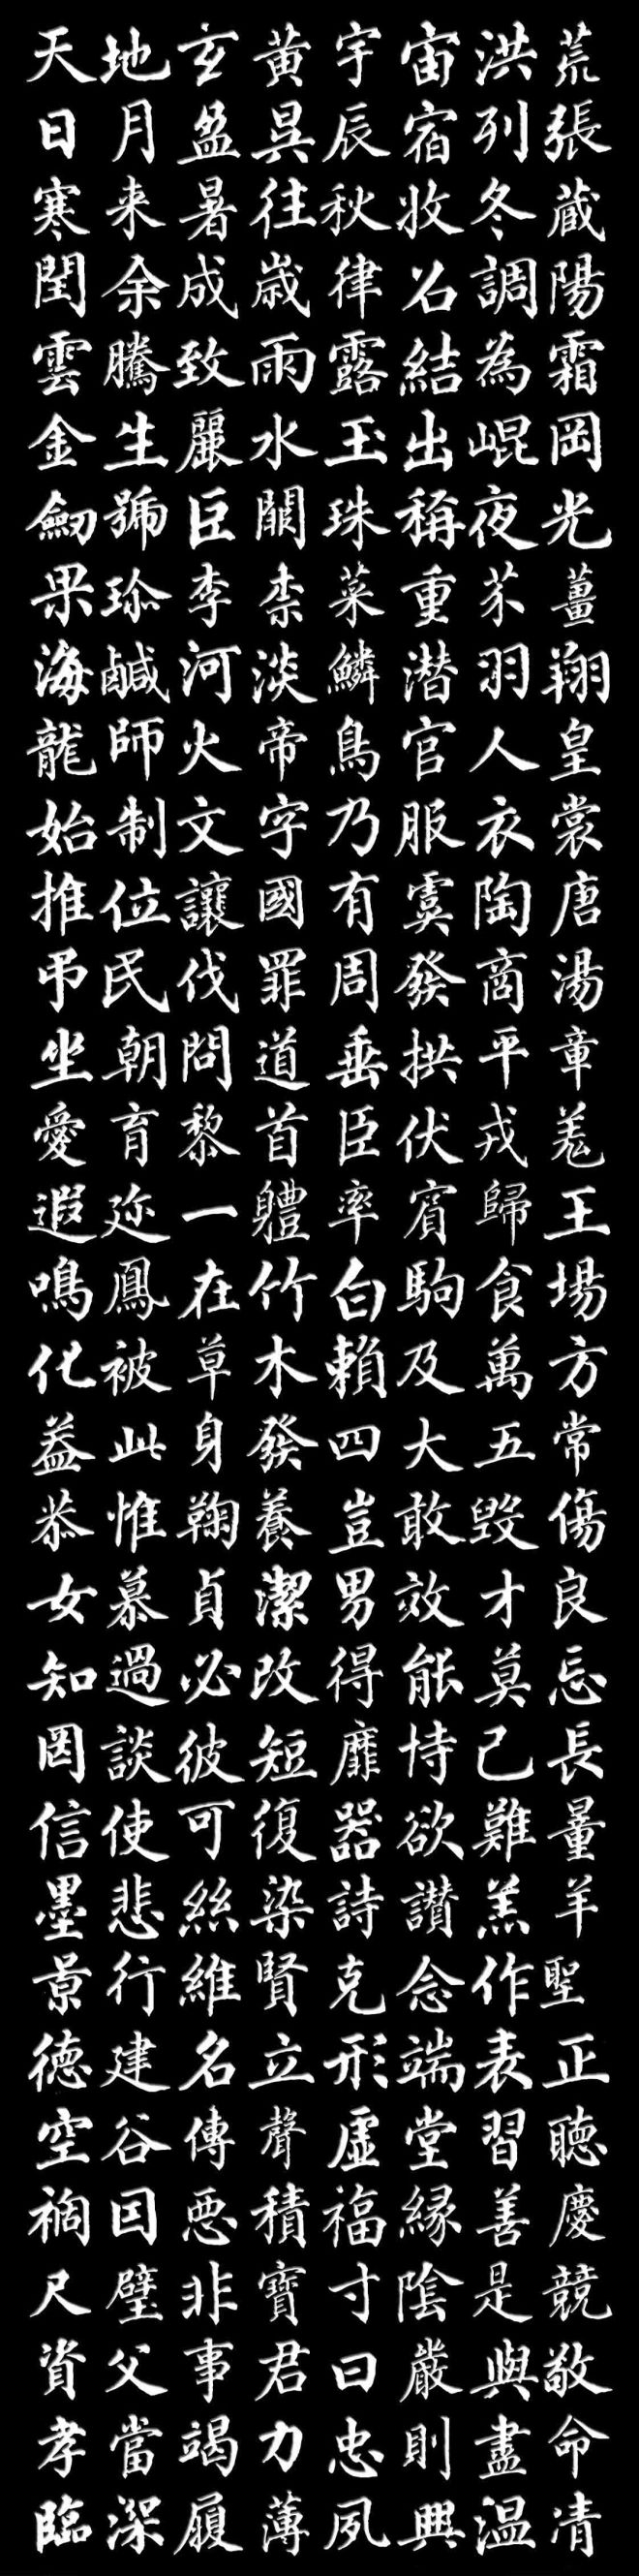 天地玄黄宇宙洪荒
日月盈昃辰宿列張
寒来暑往秋收冬蔵
閏余成歳律召調陽
雲騰致雨露結為霜
金生麗水玉出崐岡
劒號巨闕珠稱夜光
果珎李柰菜重芥薑
海鹹河淡鱗潜羽翔
龍師火帝鳥官人皇
始制文字乃服衣裳
推位讓國有虞陶唐
弔民伐罪周發商湯
坐朝問道垂拱平章
愛育黎首臣伏戎羗
遐迩一軆率賓歸王
鳴鳳在竹白駒食場
化被草木賴及萬方
葢此身發四大五常
恭惟鞠養豈敢毀傷
女慕貞潔男效才良
知過必改得能莫忘
罔談彼短靡恃己長
信使可復器欲難量
墨悲絲染詩讃羔羊
景行維賢克念作聖
德建名立形端表正
空谷傳聲虛堂習聽
禍因惡積福緣善慶
尺璧非寶寸陰是競
資父事君曰嚴與敬
孝當竭力忠則盡命
臨深履薄夙興温凊